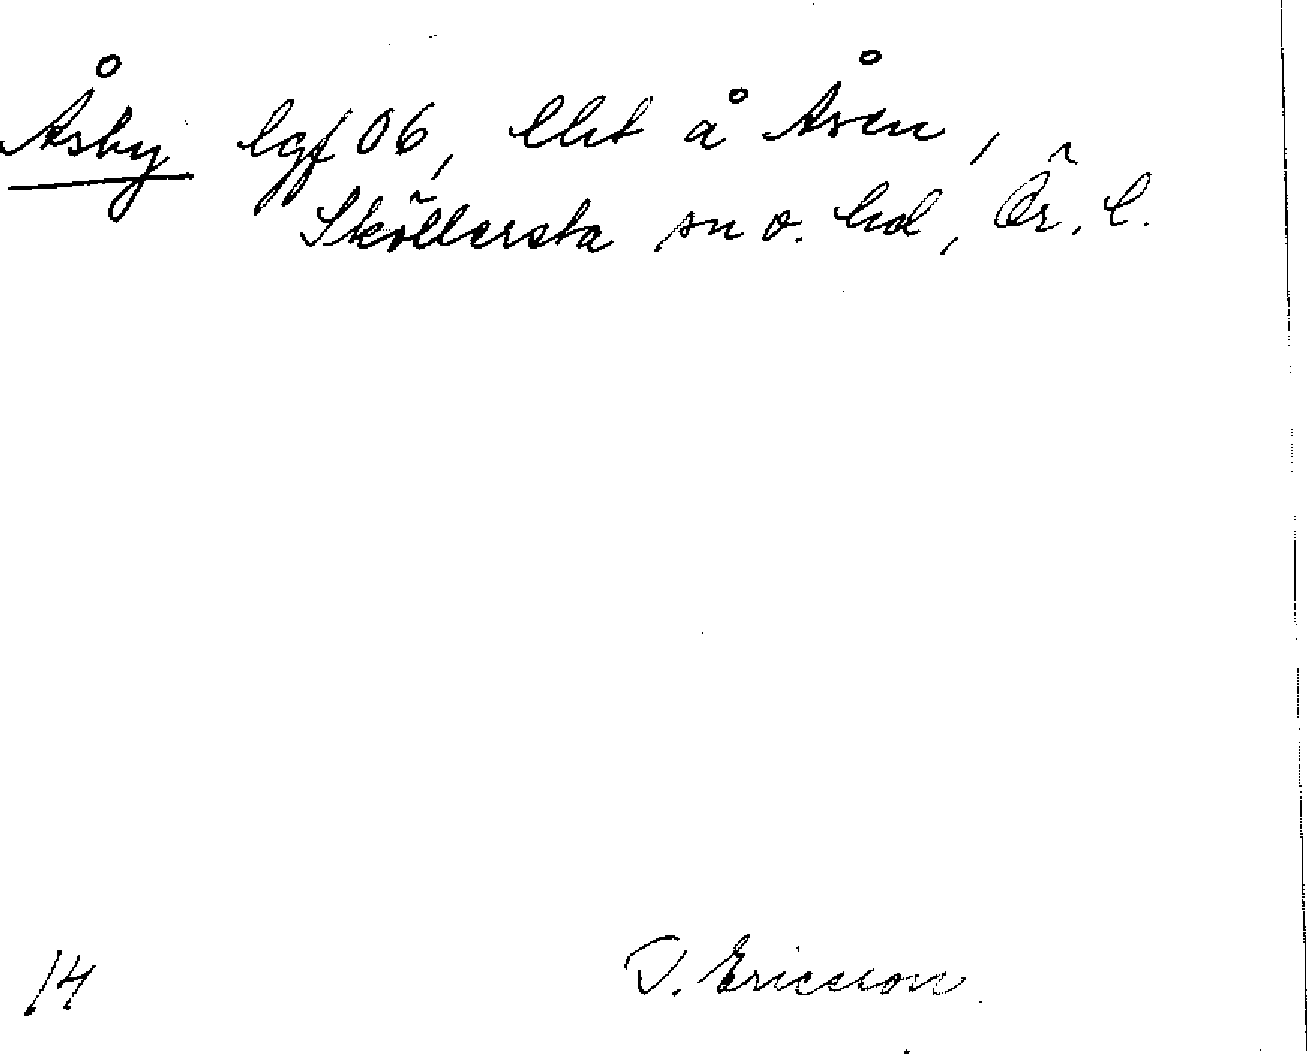 Åsby lgf 06, lht å Åsen,
Sköllersta sn o. hd, Ör. l.
14
I. Ericsson